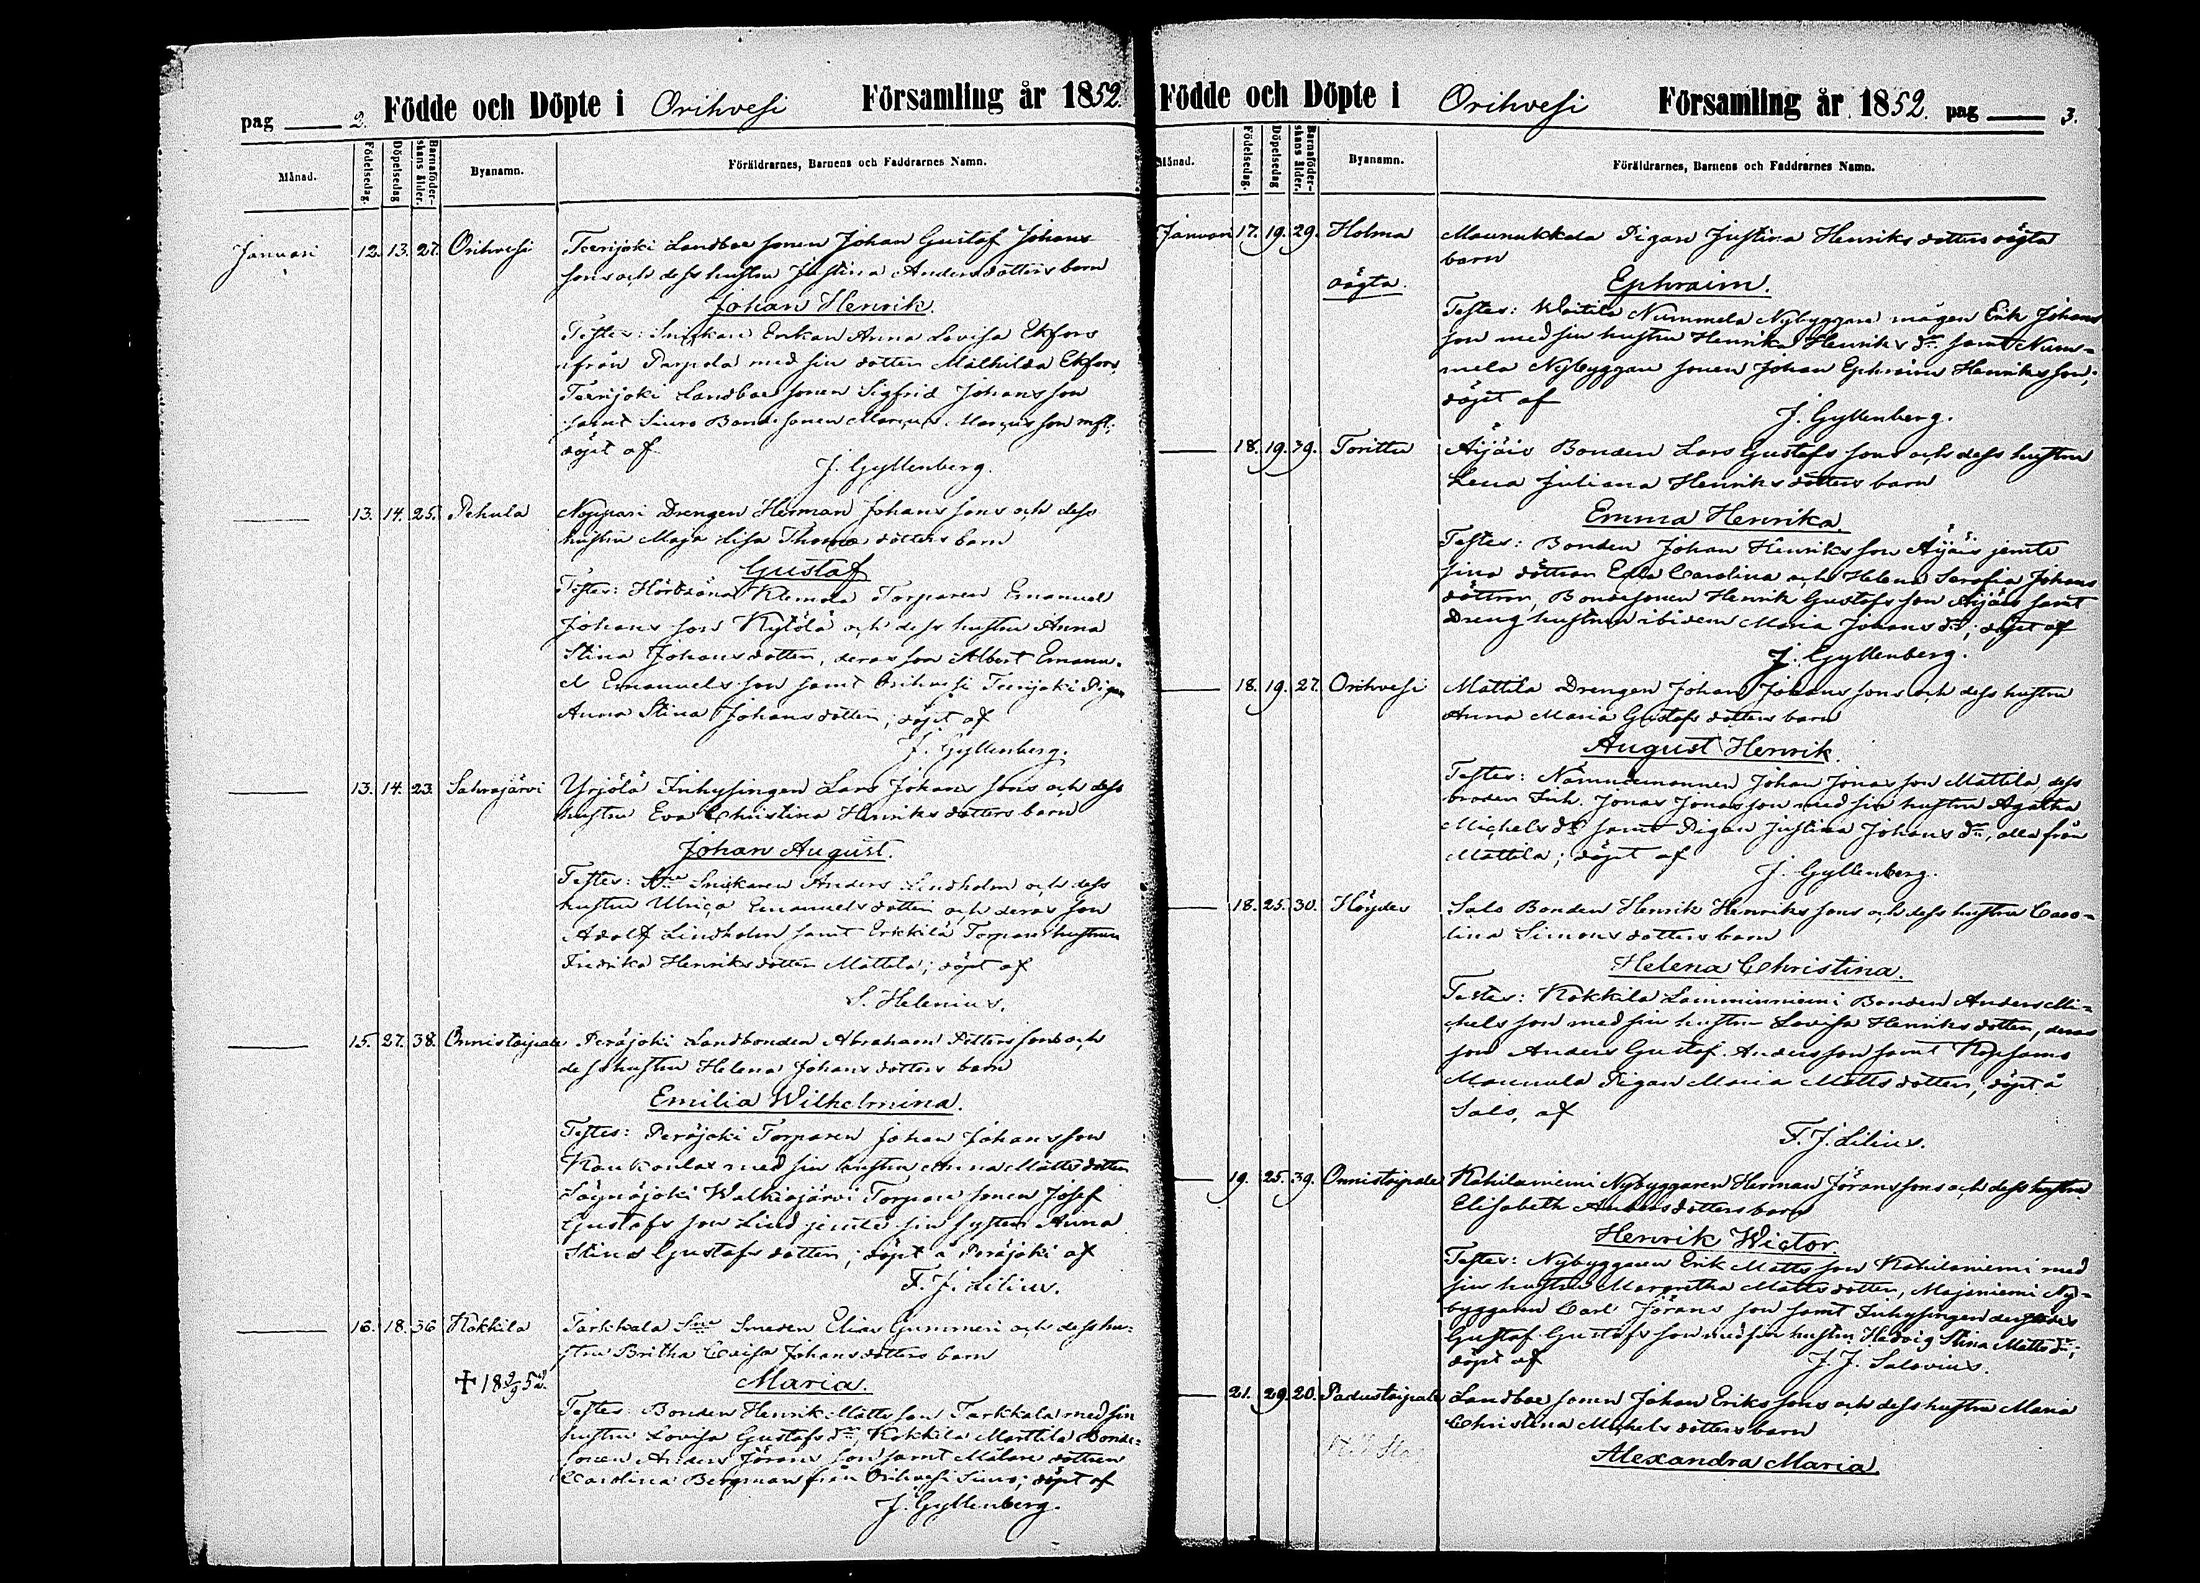 pag 2. Födde och Döpte i Orihvesi Församling år 1852.
Månad. Födelsedag. Döpelsedag Barnaföderskans ålder. Byanamn. Föräldrarnes, Barnens och Faddrarnes Namn.
Januari 12. 13. 27. Orihvesi Teerijoki Landboe sonen Johan Gustaf Johans
sons och dess hustru Justina Andersdotters barn
Johan Henrik.
Testes: Snickare Enkan Anna Lovisa Ekfors
från Parpola med sin dotter Mathilda Ekfors,
Teerijoki Landboe sonen Sigfrid Johansson
samt Siuro Bonde sonen Marcus Marcusson
döpt af
J. Gyllenberg.
13. 14. 25. Pehula Noppari Drengen Herman Johans sons och dess
hustru Maja Lisa Thomæ dotters barn
Gustaf
Testes: Klemola Torparen Emanuel
Johans son Kytölä och dess hustru Anna
Stina Johansdotter, deras son Albert Emanu-
el Emanuels son samt Orihvesi Teerijoki Pigan
Anna Stina Johansdotter; döpt af
J. Gyllenberg.
13. 14. 23. Sahrajärvi Yrjölä Inhysingen Lars Johans sons och dess
hustru Eva Christina Henriksdotters barn
Johan August.
Testes: Snickaren Anders Lindholm och dess
hustru Ulrica Emanuelsdotter och deras son
Adolf Lindholm samt Erkkilä Torpare hustrun
Fredrika Henriksdotter Mattila; döpt af
S. Helenius.
15. 27. 38. Onnistaipale Peräjoki Landbonden Abraham Petters sons och
dess hustru Helena Johans dotters barn
Emilia Wilhelmina.
Testes: Peräjoki Torparen Johan Johansson
med sin hustru Anna Mattsdotter
Walkiajärvi Torpare sonen Josef
Gustafs son Lind jemte sin syster Anna
Stina Gustafs dotter; döpt å Peräjoki af
F. J. Lilius.
16. 18. 36 Kokkila Tarkkala Smeden Elias Gummeri och dess hu-
stru Britha Lovisa Johansdotters barn
✝ 18 2/9 52. Maria.
Testes: Bonden Henrik Matts son Tarkkala med sin
hustru Lovisa Gustafs dr, Kokkila Marttila Bonde-
sonen Anders Jörans son samt Målare dottren
Carolina Bergman från Orihvesi Siuro; döpt af
J. Gyllenberg.
Födde och Döpte i Orihvesi Församling år 1852. pag 3.
Månad. Födelsedag. Döpelsedag Barnaföderskans ålder. Byanamn. Föräldrarnes, Barnens och Faddrarnes Namn.
Januari 17. 19. 29. Holma Maunukkala Pigan Justina Henriks dotters oägta
barn
oägta. Ephraim.
Testes: Nummela Nybyggare mågen Erik Johans
son med sin hustru Henrika Henriks dr samt Num-
mela Nybyggare sonen Johan Ephraim Henriksson;
döpt af
J. Gyllenberg.
18. 19. 39. Torittu Äijäis Bonden Lars Gustafs sons och dess hustru
Lena Juliana Henriksdotters barn
Emma Henrika.
Testes: Bonden Johan Henriksson Äijäis jemte
sina döttrar Edla Carolina och Helena Serafia Johans
döttrar, Bondesonen Henrik Gustafs son Äijäis samt
Dreng hustrun ibidem Maria Johans dr; döpt af
J. Gyllenberg.
18. 19. 27. Orihvesi Mattila Drengen Johan Johans sons och dess hustru
Anna Maria Gustafs dotters barn
August Henrik.
Testes: Nämndemannen Johan Jonas son Mattila, dess
broder Inh. Jonas Jonasson med sin hustru Agatha
Michels dr samt Pigan Justina Johans dr, alla från
Mattila; döpt af
J. Gyllenberg.
18. 25. 30. Salo Bonden Henrik Henriks sons och dess hustru Caro-
lina Simonsdotters barn
Helena Christina.
Testes: Kokkila Lamminniemi Bonden Anders Mi-
chels son med sin hustru Lovisa Henriks dotter, deras
son Anders Gustaf Andersson samt
Maunula Pigan Maria Mattsdotter; döpt å
Salo, af
F. J. Lilius.
19. 25. 39. Onnistaipale Kahilaniemi Nybyggaren Herman Jöransons och dess hustru
Elisabeth Andersdotters barn
Henrik Wictor.
Testes: Nybyggaren Erik Mattsson Kahilaniemi med
sin hustru Margretha Mattsdotter, Majaniemi Ny-
byggaren Carl Jörans son samt Inhysingen
Gustaf Gustafs son med sin hustru Hedvig Stina Matts dr;
döpt af J. J. Salovius.
21. 29. 20. Padustaipale Landboe sonen Johan Eriks sons och dess hustru Maria
Christina Michelsdotters barn
Alexandra Maria.